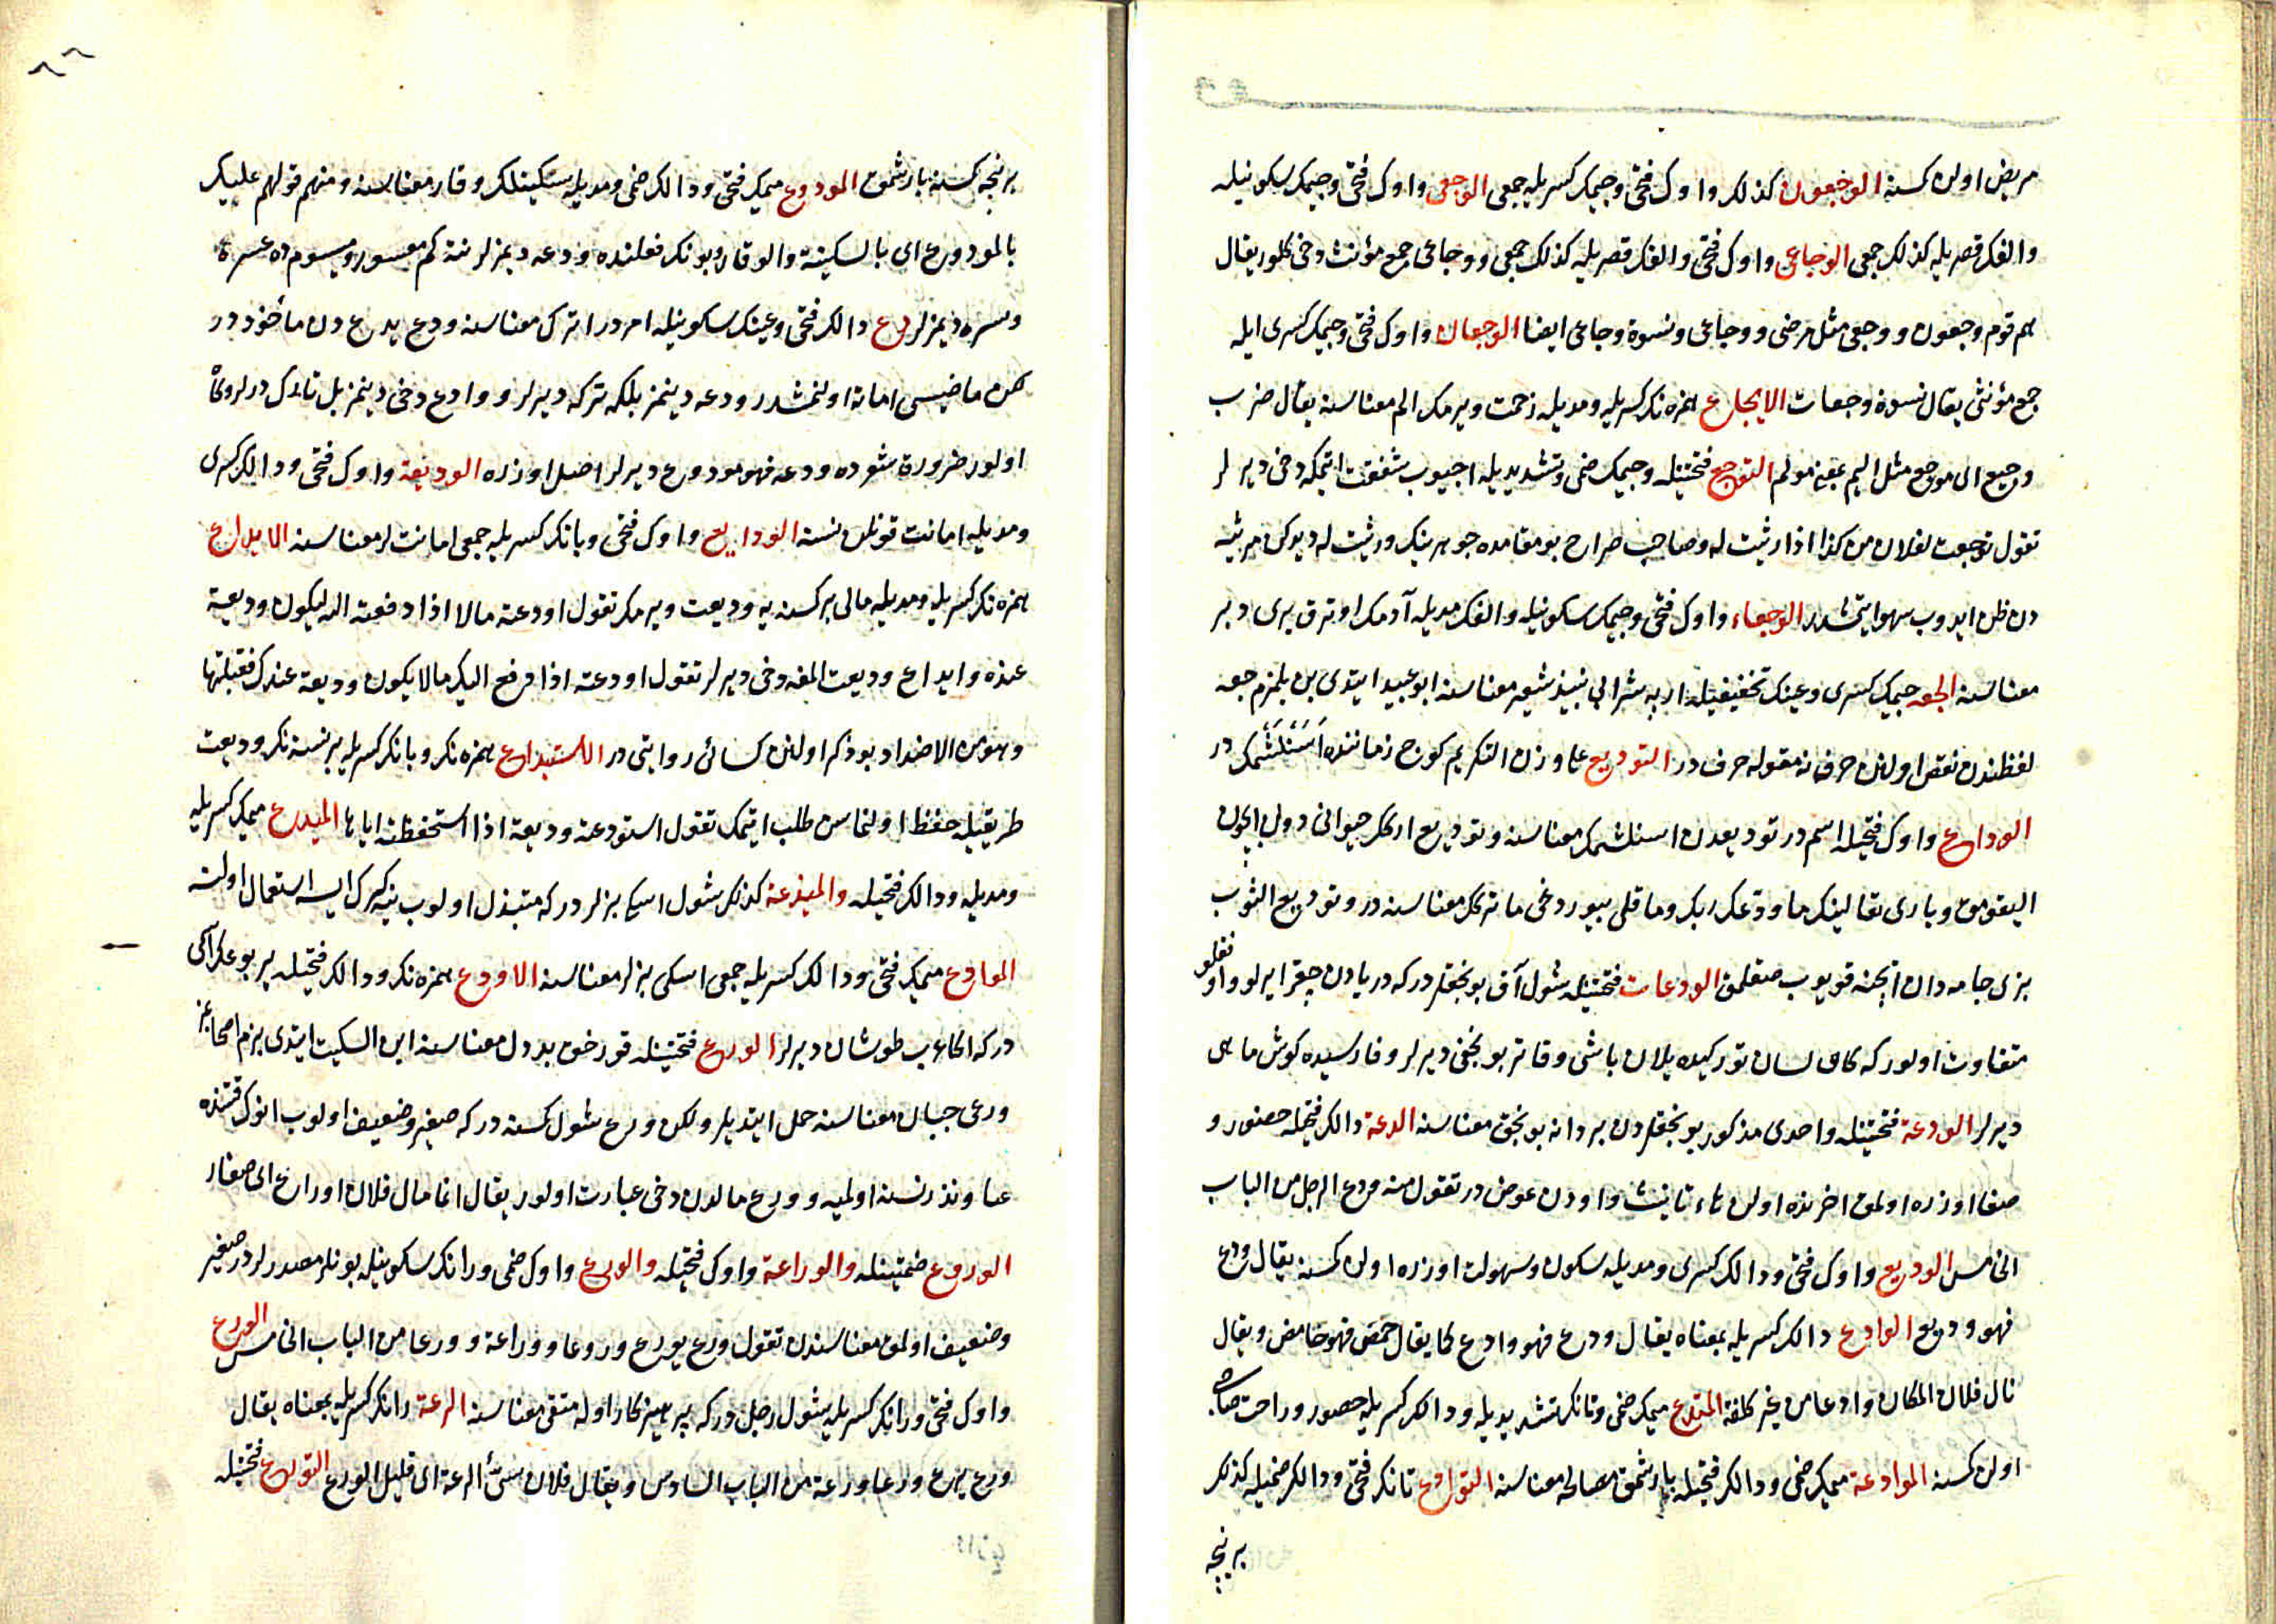 مریض اولن کسنه الوجعون کذلک واوک فتحی وجیمک کسریله جمعی الوجعی واوک فتحی وجیمک سکونیله
والفک قصریله کذلک جمعی الوجاعی واوک فتحی والفک قصریله کذلک جمعی ووجاعی جمع مؤنث دخی کلور یقال
هم قوم وجعون ووجعی مثل مرضی ووجاعی ونسوة وجاعی ایضا الوجعات واوک فتحی وجیمک کسری ایله
جمع مؤنثی یقال نسوة وجعات الایجاع همزه نک کسریله ومدیله زحمت ویرمک الم معناسنه یقال ضرب
وجیع ای موجع مثل الیم بمعنی مولم التوجع فتحتیله وجیمک ضمی وتشدیدیله اجیوب شفقت ایتمکه دخی دیرلر
تقول توجعت لفلان من کذا اذا رثیت له وصاحب صراح بو مقامده جوهرینک ورثیت له دیدکن مرثیه
دن ظن ایدوب سهو ایتمشدر الوجعاء واوک فتحی وجیمک سکونیله والفک مدیله آدمک اوترق یری دبر
معناسنه الجعه جیمک کسری وعینک تخفیفیله اربه شرابی نبیذ شعیر معناسنه ابو عبید ایتدی بن بلمزم جعه
لفظندن نقص اولنن حرف نه مقوله حرف در التودیع علی وزن التکریم کوچ زماننده اسنلشمک در
الوداع واوک فتحیله اسم در تودیعدن اسنلشمک معناسنه وتودیع ارکک حیوانی دول ایچون
الیقومق وباری تعالینک ما ودعک ربک وما قلی بیوردغی ما ترکک معناسنه در وتودیع الثوب
بزی جامه دان ایچنه قویوب صقلمق الودعات فتحتیله شول آق بونجقلردرکه دریادن چقرایرلو واوفقلو
متفاوت اولورکه کاه لسان ترکیده یلان باشی وقاتر بونجغی دیرلر وفارسیده کوش ماهی
دیرلر الودعة فتحتیله واحدی مذکور بونجقلردن بر دانه بونجق معناسنه الدعة دالک فتحیله حضور و
صفا اوزره اولمق اخرنده اولن هاء تانیث واودن عوض در تقول منه ودع الرجل من الباب
الخامس الودیع واوک فتحی ودالک کسری ومدیله سکون وسهولت اوزره اولن کسنه یقال ودع
فهو ودیع الوادع دالک کسریله بمعناه یقال ودع فهو وادع کما یقال حمض فهو حامض ویقال
نال فلان المکان وادعا من غیر کلفة المتدع میمک ضمی وتانک تشدیدیله ودالک کسریله حضور وراحت صاحبی
اولن کسنه الموادعة میمک ضمی ودالک فتحیله بارشمق مصالحه معناسنه التوادع تانک فتحی ودالک ضمیله کذلک
بر نیجه
بر نیجه کسنه بارشمق المودوع میمک فتحی ودالک ضمی ومدیله سکینتلک وقار معناسنه ومنهم قولهم علیک
بالمودوع ای بالسکینة والوقار وبونک فعلنده ودعه دیمزلر نته کم معسور ومیسورده عسره
ویسره دیمزلر دع دالک فتحی وعینک سکونیله امر در اترک معناسنه ودع یدع دن مأخوذ در
لکن ماضیسی اماته اولنمشدر ودعه دینمز بلکه ترکه دیرلر ووادع دخی دینمز بل تارک درلر وکاه
اولور ضرورة شعرده ودعه فهو مودوع دیرلر اصل اوزره الودیعة واوک فتحی ودالک کسری
ومدیله امانت قونلن نسنه الودایع واوک فتحی ویانک کسریله جمعی امانتلر معناسنه الایداع
همزه نک کسریله ومدیله مالی بر کسنه یه ودیعت ویرمک تقول اودعته مالا اذا دفعته الیه لیکون ودیعة
عنده وایداع ودیعت المغه دخی دیرلر تقول اودعته اذا دفع الیک مالا یکون ودیعة عندک فقبلتها
وهو من الاضداد بو ذکر اولنن کسائی روایتی در الاستیداع همزه نک ویانک کسریله بر نسنه نک ودیعت
طریقیله حفظ اولنماسن طلب ایتمک تقول استودعته ودیعة اذا استحفظته ایاها المیدع میمک کسریله
ومدیله ودالک فتحیله والمیدعة کذلک شول اسکی بزلر درکه متبذل اولوب ینه کرک ایسه استعمال اولنه
الموادع میمک فتحی ودالک کسریله جمعی اسکی بزلر معناسنه الاودع همزه نک ودالک فتحیله یربوع
درکه اکا عرب طوشان دیرلر الورع فتحتیله قورخق بددل معناسنه ابن السکیت ایتدی بزم اصحابمز
ورعی جبان معناسنه حمل ایتدیلر ولکن ورع شول کسنه درکه صغیر وضعیف اولوب انک قتنده
غنا ونذر نسنه اولمیه وورع مالدن دخی عبارت اولور یقال انما مال فلان اوراع ای صغار
الوروع ضمتیله والوراعة واوک فتحیله والورع واوک ضمی ورانک سکونیله بونلر مصدرلردر صغیر
وضعیف اولمق معناسندن تقول ورع یورع وروعا ووراعة وورعا من الباب الخامس الورع
واوک فتحی ورانک کسریله شول رجل درکه پرهیزکار اوله متقی معناسنه الرعة رانک کسریله بمعناه یقال
ورع یرع ورعا ورعة من الباب السادس ویقال فلان سیئ الرعة ای قلیل الورع التورع فتحتیله